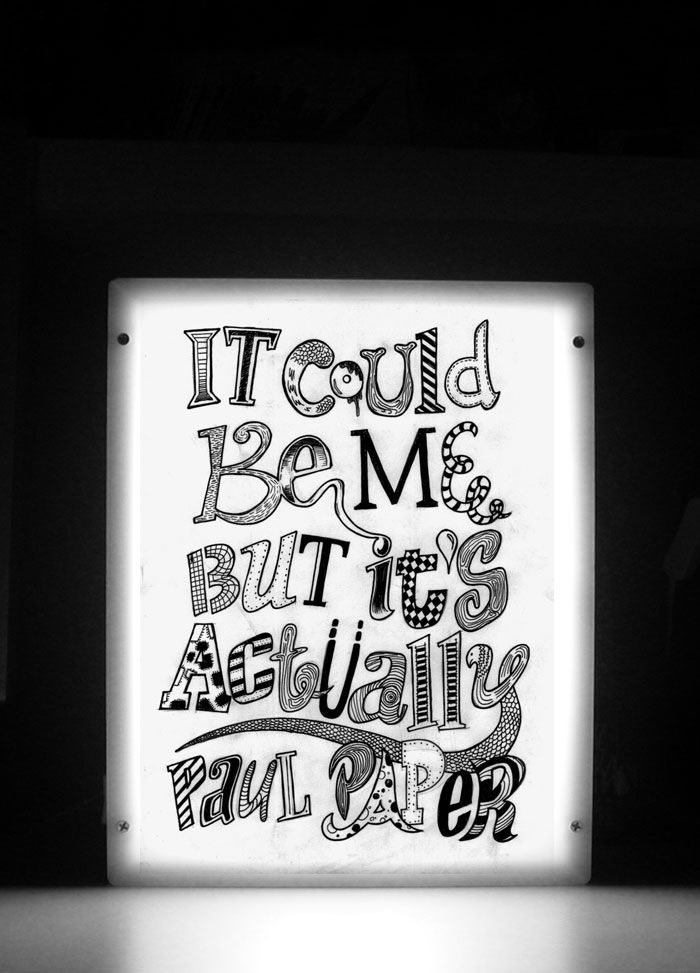 IT Could
Be ME
BUT it's
Actüally
Paul PAPeR